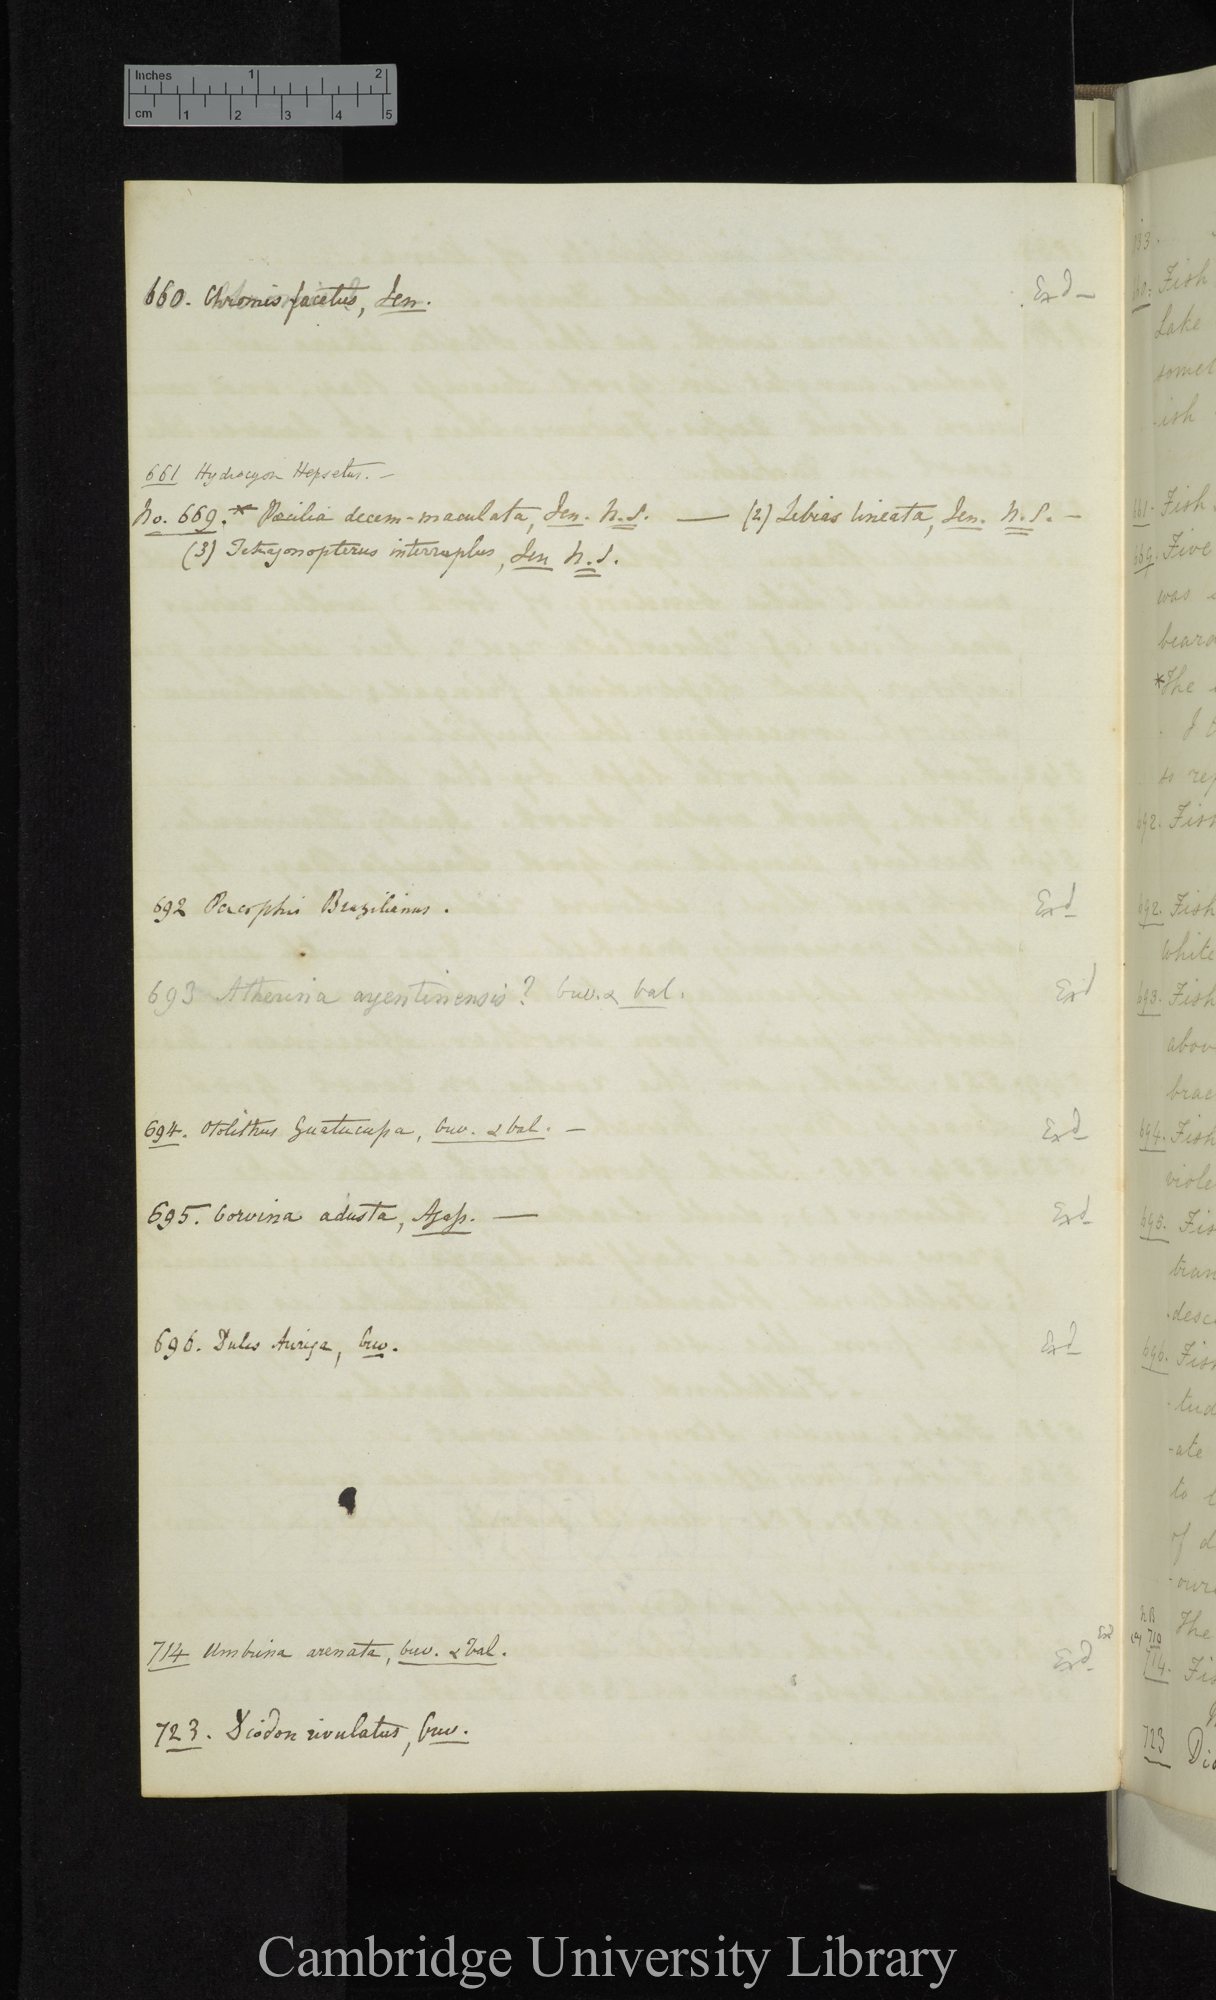 Inches 1 2
cm 1 2 3 4 5
660. Chromis facetus, Jen. Exd
661 Hydrocyon Hepsetus. —
No. 669.* Pœcilia decem-maculata, Jen. N.S. — (2) Lebias lineata, Jen. N.S. —
(3) Tetragonopterus interruptus, Jen N.S.
692 Percophis Brazilianus. Exd
693 Atherina argentinensis? Cuv. & Val. Exd
694. Otolithus Guatucupa, Cuv. & Val. — Exd
695. Corvina adusta, Agass. — Exd
696. Dules Auriga, Cuv. Exd
714 Umbrina arenata, Cuv. & Val. Exd
723. Diodon rivulatus, Cuv.
Fish
Lake
somet
ish
661. Fish
669. Five
was
beard
*The
I
to rep
692. Fish
692. Fish
White
693. Fish
abov
brac
694. Fish
viole
695. Fis
tran
desc
696. Fish
tud
ate
to
of d
our
NB The
710
Exd
714. Fis
723 Dio
Cambridge University Library